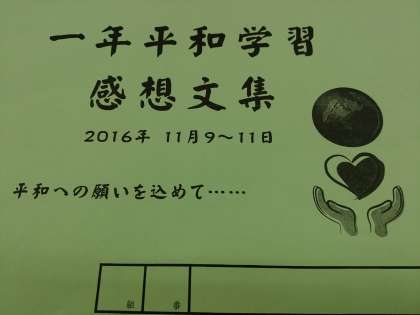 一年平和学習
感想文集
2016年 11月9～11日
平和への願いを込めて……
組 番